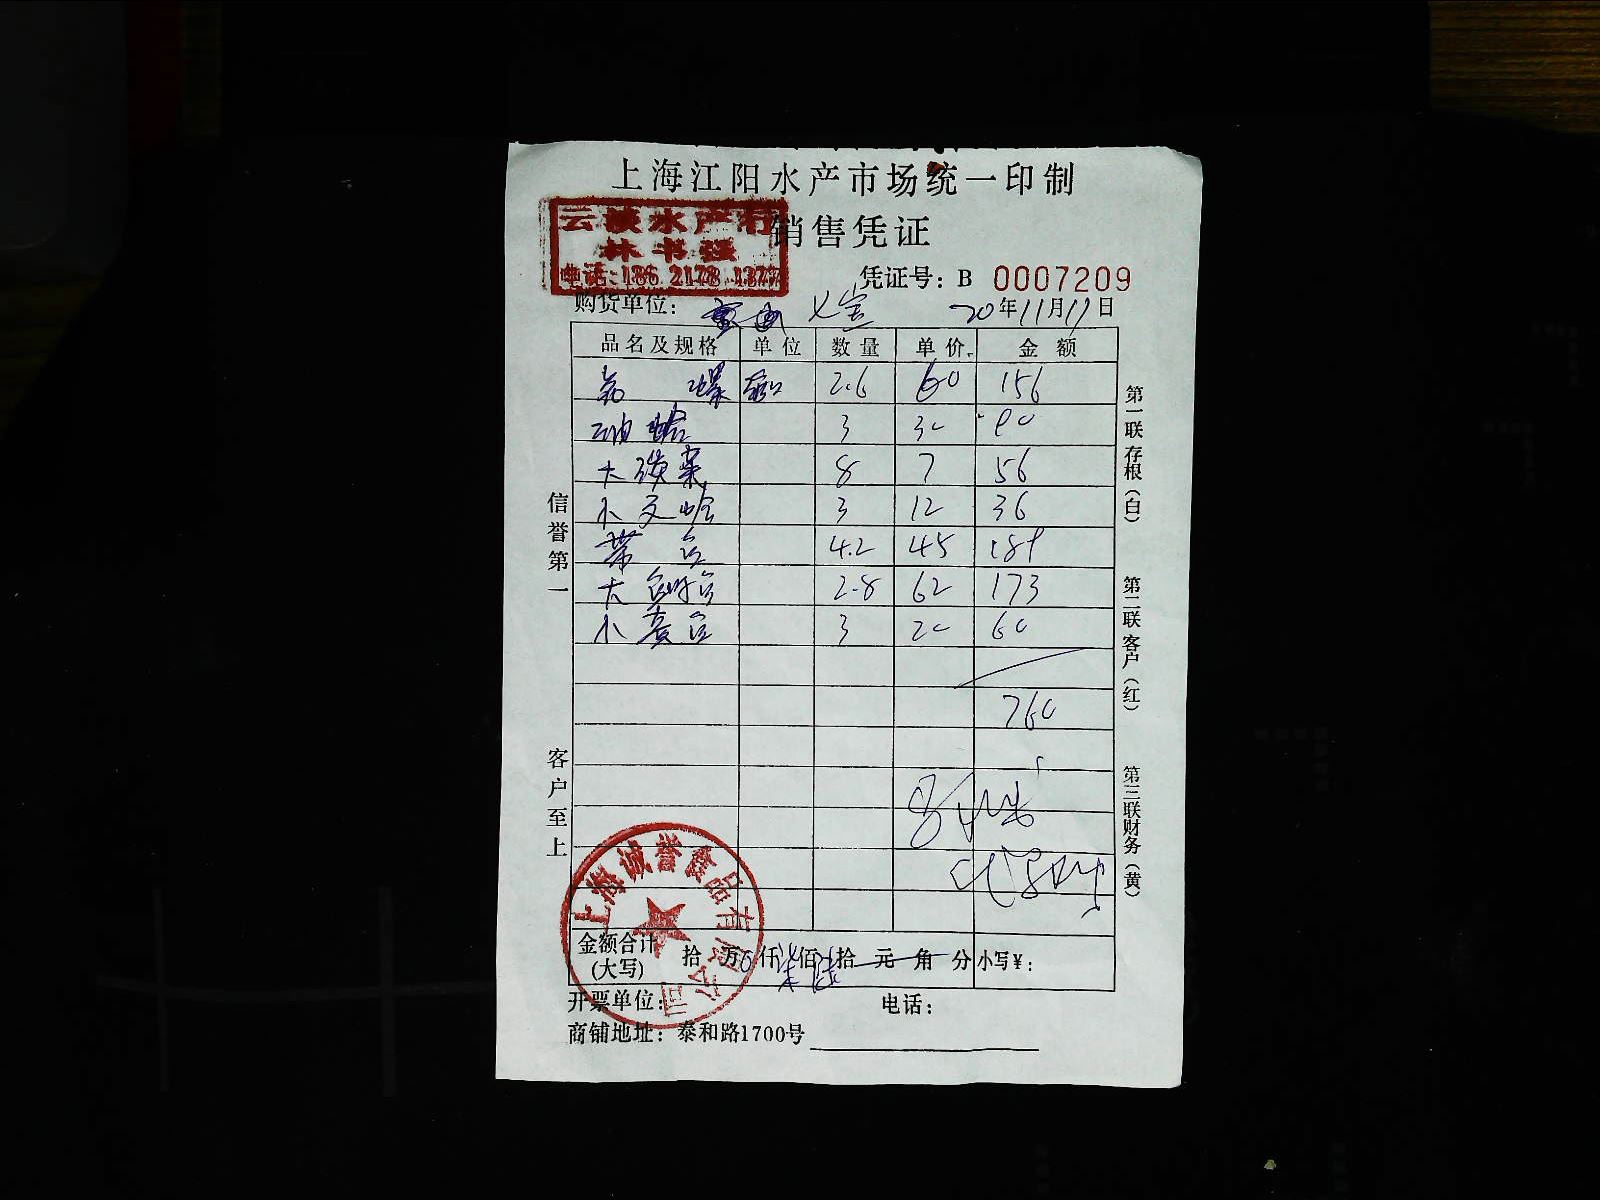 上海江阳水产市场统一印制
销售凭证
水产行
林书强
电话：186 2178 1377
凭证号：B 0007209
购货单位： 七宝 20年11月17日
品名及规格 单位 数量 单价 金额
螺 2.6 60 156
油蛤 3 30 90
大 8 7 56
小文蛤 3 12 36
带鱼 4.2 45 189
大鲳鱼 2.8 62 173
小黄鱼 3 20 60
760
信誉第一
客户至上
第一联存根（白）
第二联客户（红）
第三联财务（黄）
上海诚誉食品有限公司
金额合计（大写） 拾 万 仟柒佰陆拾 元 角 分 小写￥：
开票单位： 电话：
商铺地址：泰和路1700号